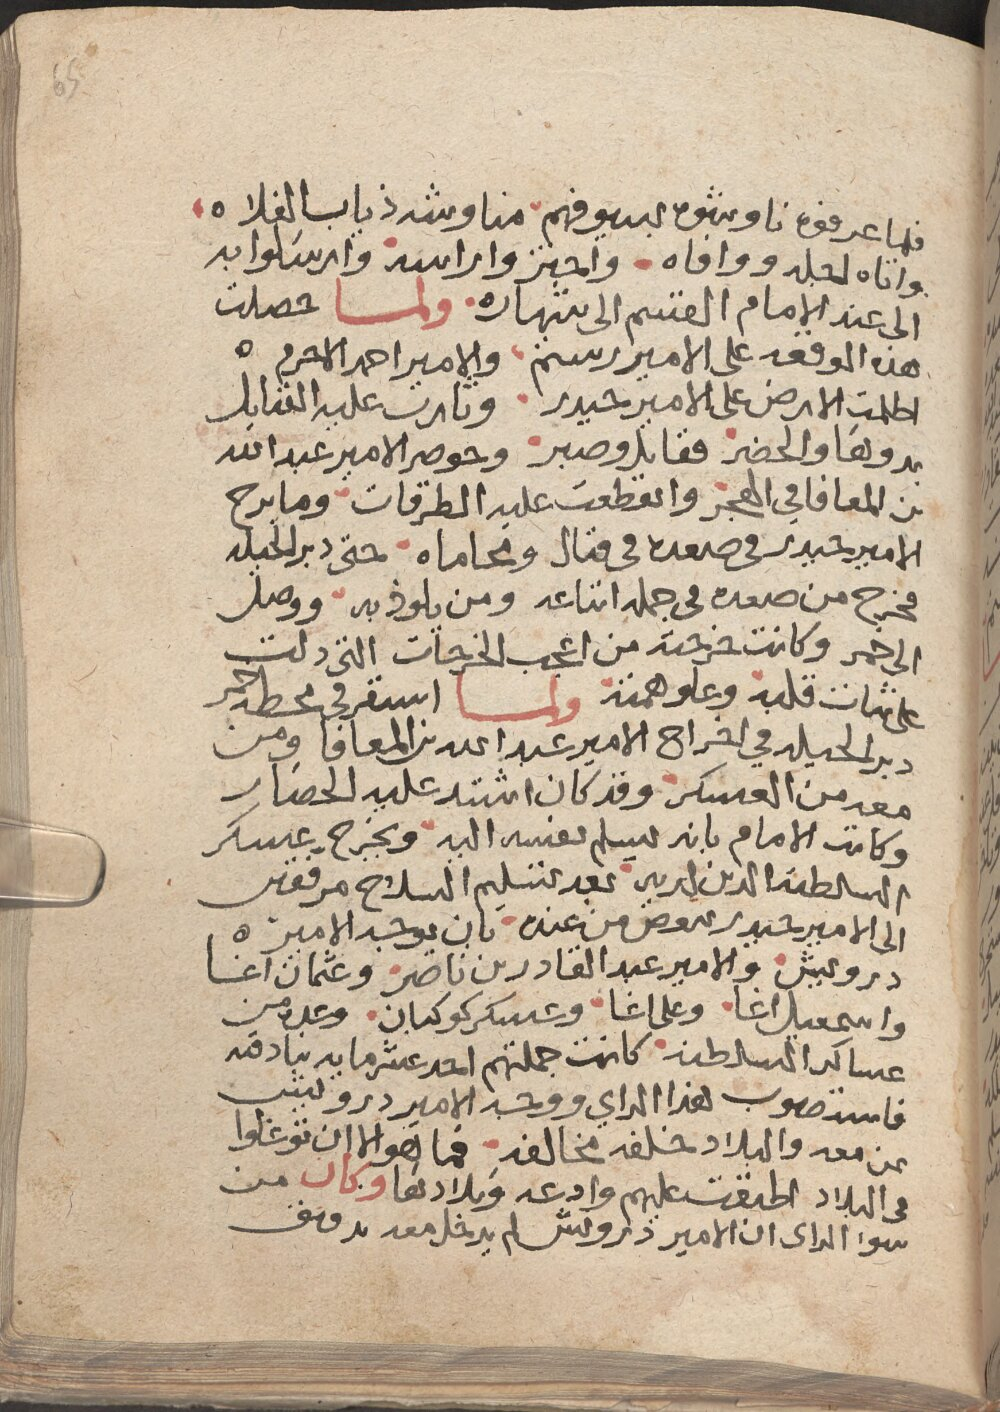 65
فلما عرفوه ناوشوه بسيوفهم مناوشة ذباب الفلاه
واتاه اجله ووافاه واحتز واراسه وارسلوا به
الى عند الامام القسم الى شهاره ولما حصلت
هذه الوقعه على الامير رستم والامير احمد الاخرم
اظلمت الارض على الامير حيدر وثارت عليه القبايل
بدوها والحضر فقابل وصبر وحوصر الامير عبد الله
بن المعافا في الهجر وانقطعت عليه الطرقات وما برح
الامير حيدر في صعده في قتال ومحاماه حتى دبر الحيله
فخرج من صعده في جمله اتباعه ومن يلوذ به ووصل
الى خمر وكانت خرجته من اعجب الخرجات التي دلت
على ثبات قلبه وعلو همته ولما استقر في محطه خمر
دبر الحيله في اخراج الامير عبد الله بن المعافا ومن
معه من العسكر وقد كان اشتد عليه الحصار
وكاتب الامام بانه يسلم نفسه اليه ويخرج عسكر
السلطنه الذين لديه بعد تسليم السلاح مرفقين
الى الامير حيدر عوض من عنده بان يوجه الامير
درويش والامير عبد القادر بن ناصر وعثمان اغا
واسمعيل اغا وعلى اغا وعسكر كوكبان وعده من
عساكر السلطنه كانت جملتهم احد عشر مايه بنادقه
فاستصوب هذا الراي ووجه الامير درويش
بمن معه والبلاد خلفه مخالفه فما هو الا ان توغلوا
في البلاد اطبقت عليهم وادعه وبلادها وكان من
سوا الراى ان الامير درويش لم يدخل معه